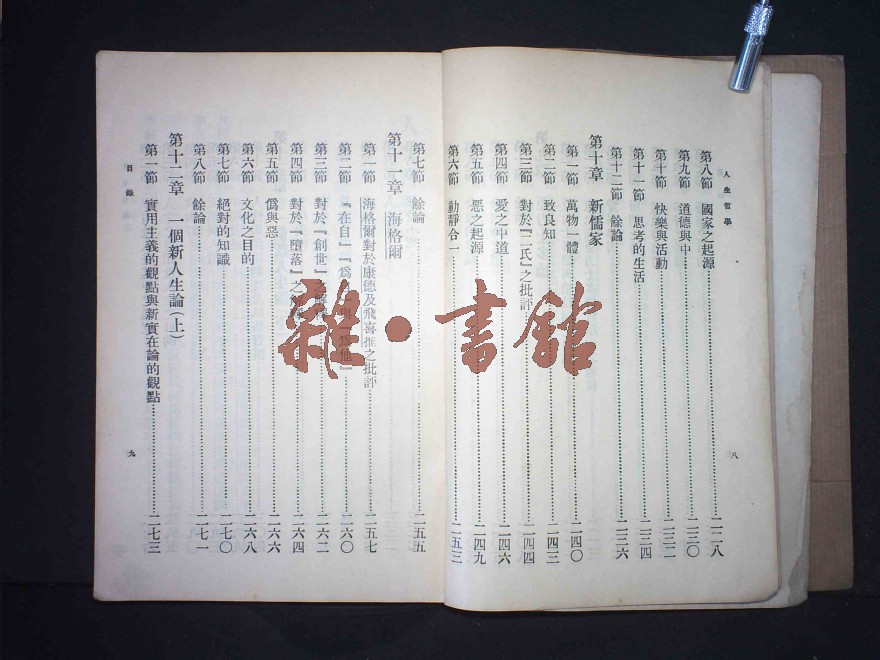 人生哲學
第八節 國家之起源……二二八
第九節 道德與中……二三〇
第十節 快樂與活動……二三二
第十一節 思考的生活……二三四
第十二節 餘論……二三六
第十章 新儒家
第一節 萬物一體……二四〇
第二節 致良知……二四三
第三節 對於『二氏』之批評……二四四
第四節 愛之中道……二四六
第五節 惡之起源……二四九
第六節 動靜合一……二五三
八
第七節 餘論……二五五
第十一章 海格爾
第一節 海格爾對於康德及飛喜推之批評……二五七
第二節 『在自』『爲自』與『爲他』……二六〇
第三節 對於『創世』之解釋……二六二
第四節 對於『墮落』之解釋……二六四
第五節 僞與惡……二六六
第六節 文化之目的……二六八
第七節 絕對的知識……二七〇
第八節 餘論……二七一
第十二章 一個新人生論(上)
第一節 實用主義的觀點與新實在論的觀點……二七三
目錄
九
雜·書館